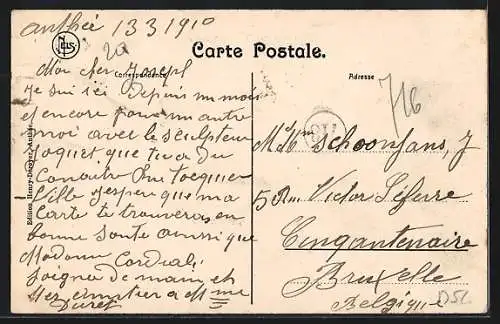 anthée 13 3 1910
20
NELS
Carte Postale.
Correspondance
Adresse
Mon cher Joseph
Je sui ici depuis un mois
et encore pour un autre
moi avec le sculpteur
que tu a du
Conaitre Rue
ville J'espere que ma
Carte te trouvera en
bonne Santé ainsi que
Madame Cordial
soigné de main et
a Mme
716
Schoonjans, J
5 Rue Victor Lefevre
Cinquantenaire
Bruxelle
Belgique
Edition Henry-Denyer, Anthée